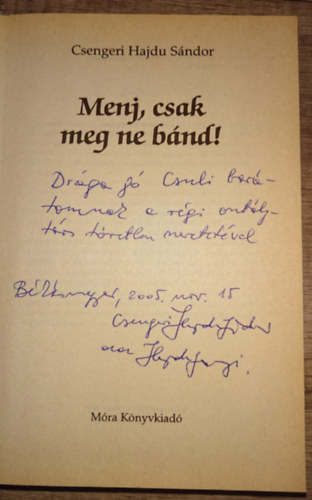 Csengeri Hajdu Sándor
Menj, csak
meg ne bánd!
Drága jó Csuli bará-
tomnak a régi osztály-
társ töretlen szeretetével
2005. nov. 15
Csengeri Hajdu Sándor
Móra Könyvkiadó